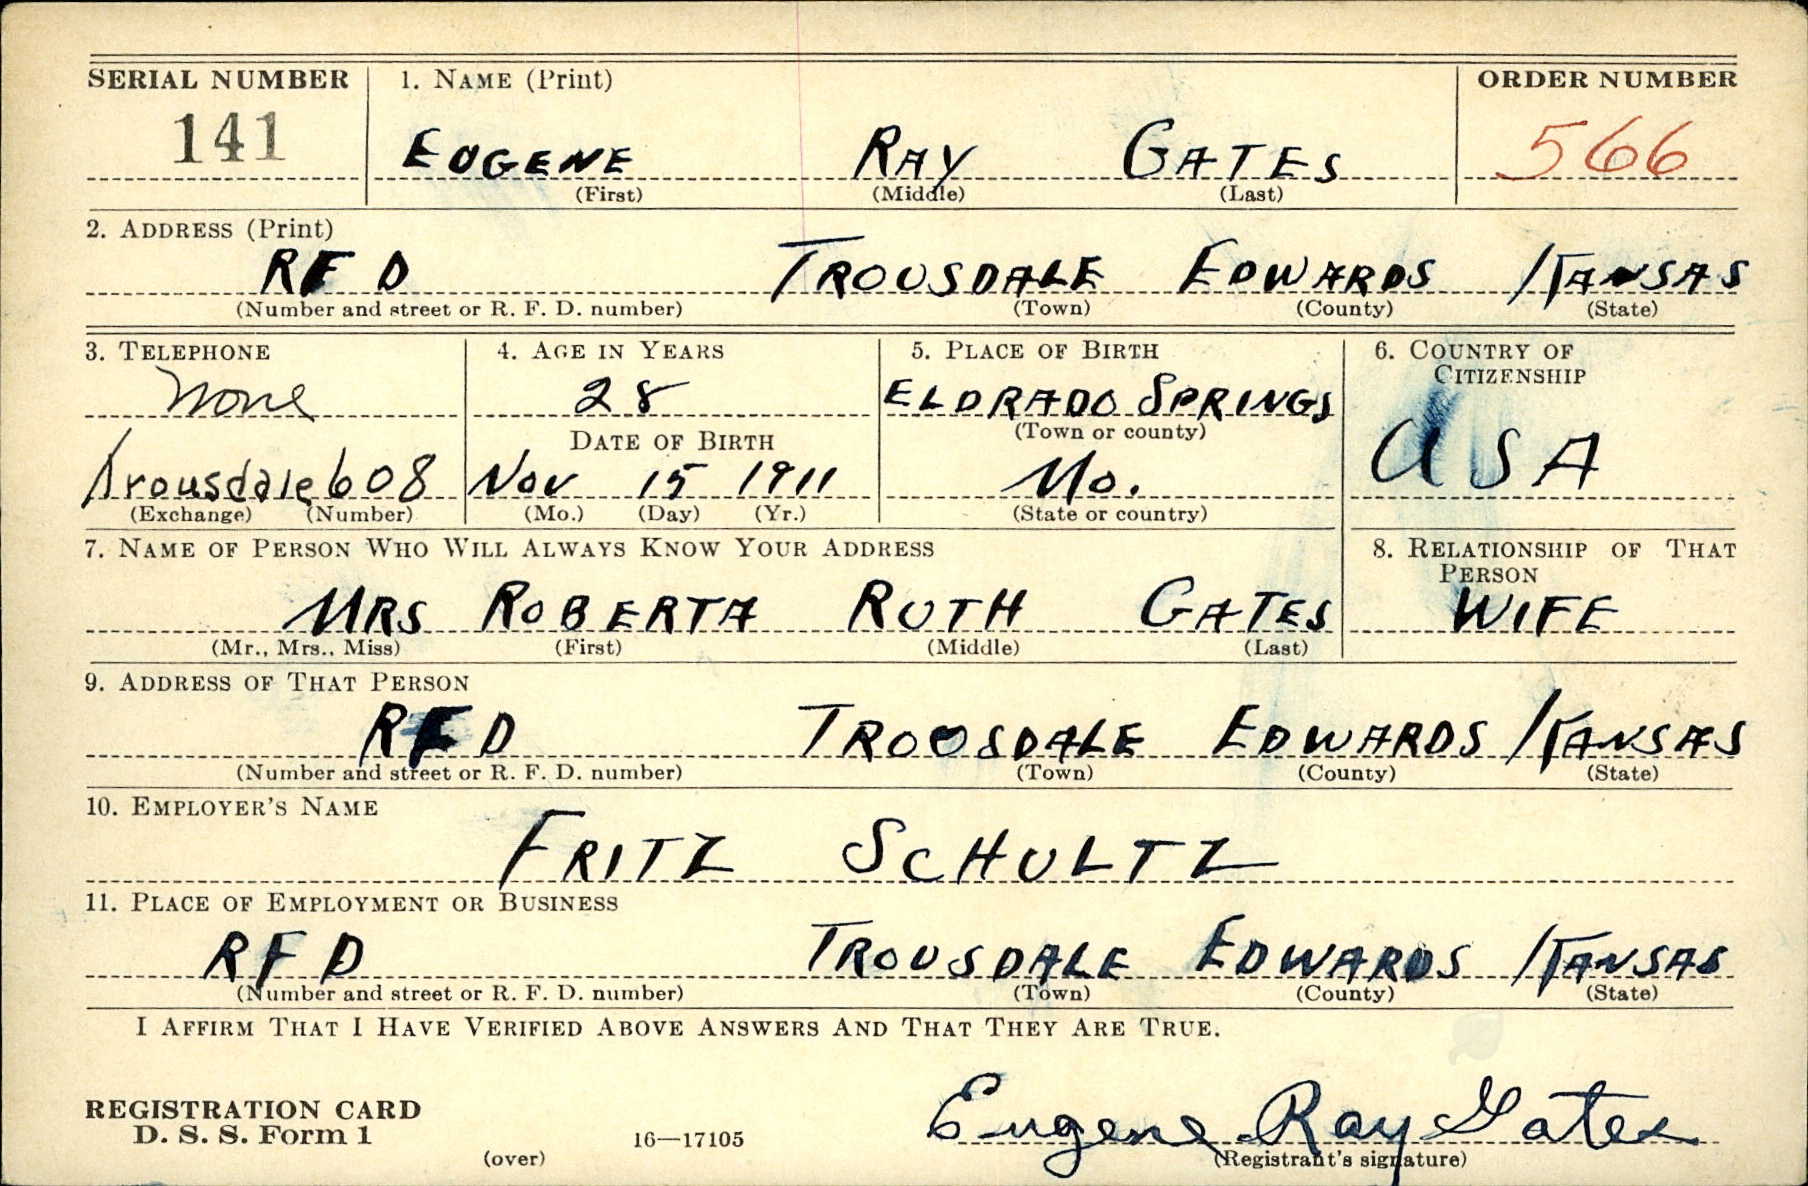 SERIAL NUMBER 1. NAME (Print) ORDER NUMBER
141 EUGENE RAY GATES 566
(First) (Middle) (Last)
2. ADDRESS (Print)
RFD TROUSDALE EDWARDS KANSAS
(Number and street or R. F. D. number) (Town) (County) (State)
3. TELEPHONE 4. AGE IN YEARS 5. PLACE OF BIRTH 6. COUNTRY OF CITIZENSHIP
None 28 ELDRADO SPRINGS
DATE OF BIRTH (Town or county) USA
Trousdale 608 Nov 15 1911 Mo.
(Exchange) (Number) (Mo.) (Day) (Yr.) (State or country)
7. NAME OF PERSON WHO WILL ALWAYS KNOW YOUR ADDRESS 8. RELATIONSHIP OF THAT PERSON
MRS ROBERTA RUTH GATES WIFE
(Mr., Mrs., Miss) (First) (Middle) (Last)
9. ADDRESS OF THAT PERSON
RFD TROUSDALE EDWARDS KANSAS
(Number and street or R. F. D. number) (Town) (County) (State)
10. EMPLOYER'S NAME
FRITZ SCHULTZ
11. PLACE OF EMPLOYMENT OR BUSINESS
RFD TROUSDALE EDWARDS KANSAS
(Number and street or R. F. D. number) (Town) (County) (State)
I AFFIRM THAT I HAVE VERIFIED ABOVE ANSWERS AND THAT THEY ARE TRUE.
REGISTRATION CARD
D. S. S. Form 1 16—17105 Eugene Ray Gates
(over) (Registrant's signature)